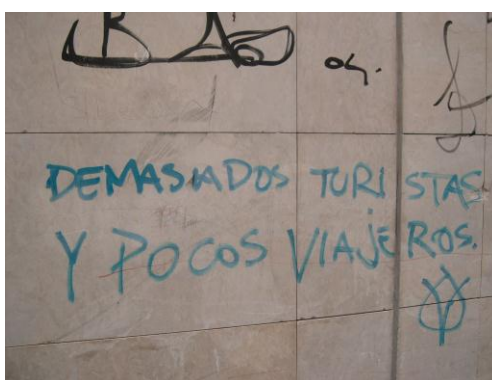 DEMASIADOS TURISTAS
Y POCOS VIAJEROS.